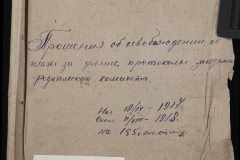 Прошения об освобождении от
платы за учение, протоколы заседаний
родительского комитета.
1917
1918
На 195 листах